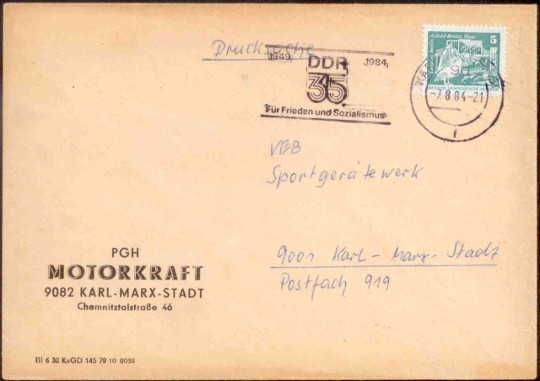 Drucksache
1949 1984
DDR
35
Für Frieden und Sozialismus
5
-7.8.84-21
VEB
Sportgerätewerk
9001 Karl-Marx-Stadt
Postfach 919
PGH
MOTORKRAFT
9082 KARL-MARX-STADT
Chemnitztalstraße 46
III 6 30 KvGD 145 79 10 2052